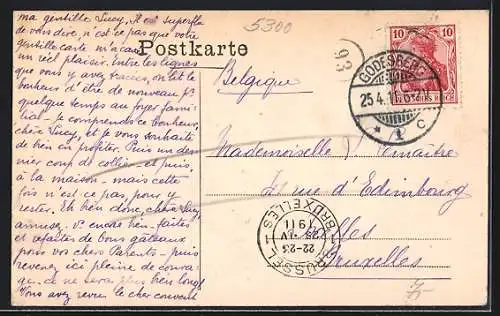 ma gentille Lucy, Il est superflu
de vous dire, n'est ce pas que votre
gentille carte m'a causé
un réel plaisir. Entre les lignes
que vous y avez tracées, on lit le
bonheur d'être de nouveau pr
quelque temps au foyer fami-
lial - Je comprends ce bonheur,
chère Lucy, et je vous souhaite
de bien en profiter. Puis un der-
nier coup de collier - et puis
à la maison - mais cette
fois n'est-ce pas, pour y
rester. Eh bien donc, chère Lucy,
amusez-vs encore bien - faites
et refaites de bons gâteaux
pour vos chers Parents - puis
revenez ici pleine de coura-
ge - ce ne sera plus bien long
Vous avez revu le cher couvent
5300
93
Postkarte
Belgique
10 10
DEUTSCHES REICH
GODESBERG
25.4.11
* 1 c
Mademoiselle Lemaître
rue d'Edimbourg
Ixelles
Bruxelles
BRUXELLES
1911
IV
22-23
BRUSSEL